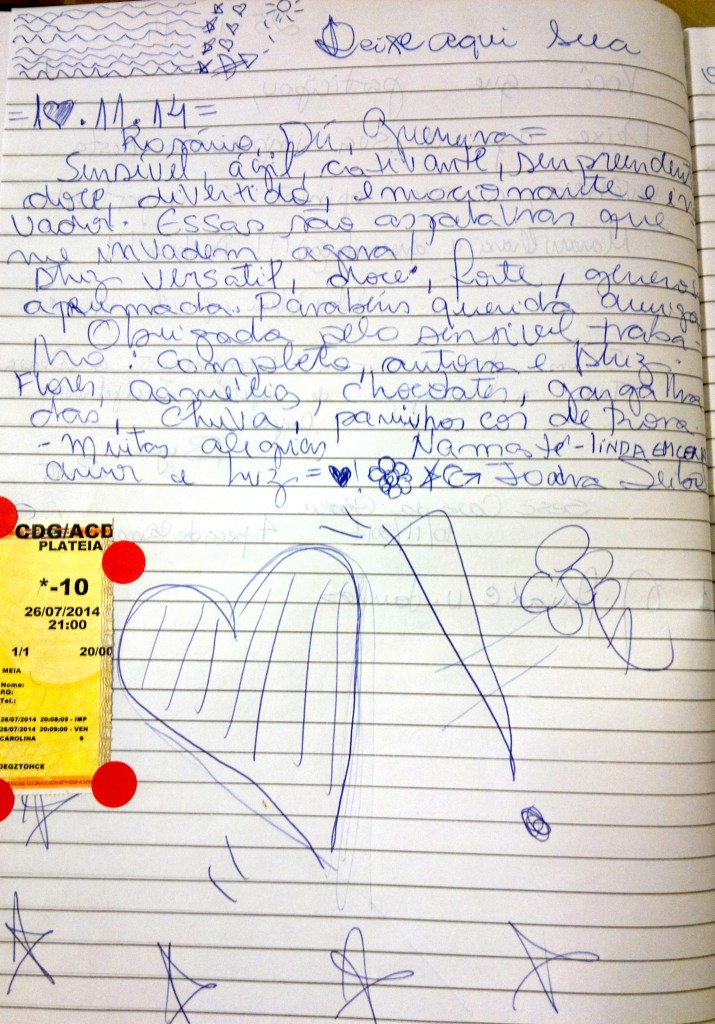 Deixe aqui sua
= 1♥.11.14 =
Rosário, Dú, Queneiva =
Sensível, ágil, cativante, surpreendent
doce, divertido, emocionante e in
vador. Essas são as palavras que
me invadem agora!
Luz versátil, doce, forte, generos
aprumada. Parabéns querida amiga
Obrigada pelo sensível traba-
lho: completo, autora e luz.
Flores, , chocolates, gargalha
das, chuva, paninhos cor de prova
- Muitas alegrias Namastê - LINDA EM CENA
amor e luz = ♥! Joana
CDG/ACD
PLATEIA
*-10
26/07/2014
21:00
1/1 20/00
MEIA
Nome:
RG:
Tel.:
26/07/2014 20:08:09 - IMP
26/07/2014 20:09:00 - VEN
CAROLINA 9
DEGZTOHCE